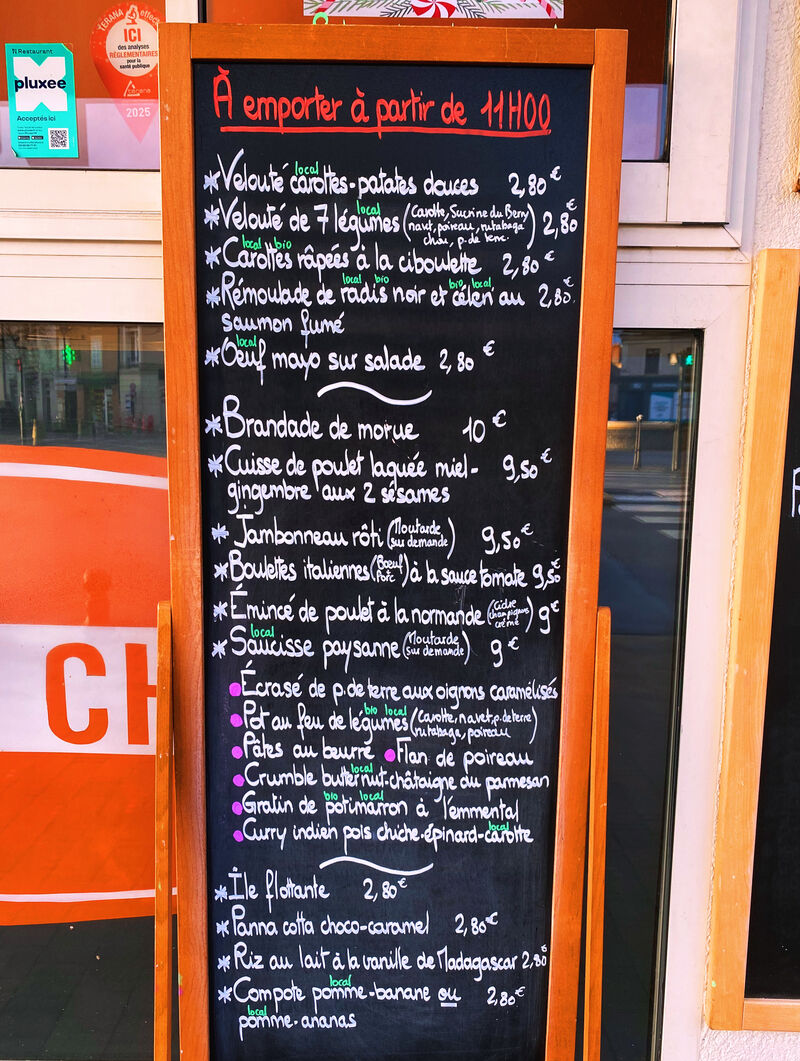 Restaurant
pluxee
Acceptés ici
TERANA effect
ICI
des analyses
RÉGLEMENTAIRES
pour la
santé publique
terana
2025
À emporter à partir de 11H00
local
*Velouté carottes-patates douces 2,80€
local
*Velouté de 7 légumes (Carotte, Sucrine du Berry
navet, poireau, rutabaga
chou, p. de terre.) 2,80€
local bio
*Carottes râpées à la ciboulette 2,80€
local bio bio local
*Rémoulade de radis noir et céleri au 2,80€
saumon fumé
local
*Oeuf mayo sur salade 2,80€
*Brandade de morue 10€
*Cuisse de poulet laquée miel- 9,50€
gingembre aux 2 sésames
*Jambonneau rôti (Moutarde
sur demande) 9,50€
*Boulettes italiennes (Bœuf
Porc) à la sauce tomate 9,50€
*Émincé de poulet à la normande (Cidre
champignons
crème) 9€
local
*Saucisse paysanne (Moutarde
sur demande) 9€
•Écrasé de p. de terre aux oignons caramélisés
bio local
•Pot au feu de légumes (Carotte, navet, p. de terre
rutabaga, poireau)
•Pâtes au beurre •Flan de poireau
local
•Crumble butternut-châtaigne du parmesan
bio local
•Gratin de potimarron à l'emmental
local
•Curry indien pois chiche-épinard-carotte
*Île flottante 2,80€
*Panna cotta choco-caramel 2,80€
*Riz au lait à la vanille de Madagascar 2,80€
local
*Compote pomme-banane ou 2,80€
local
pomme-ananas
CH